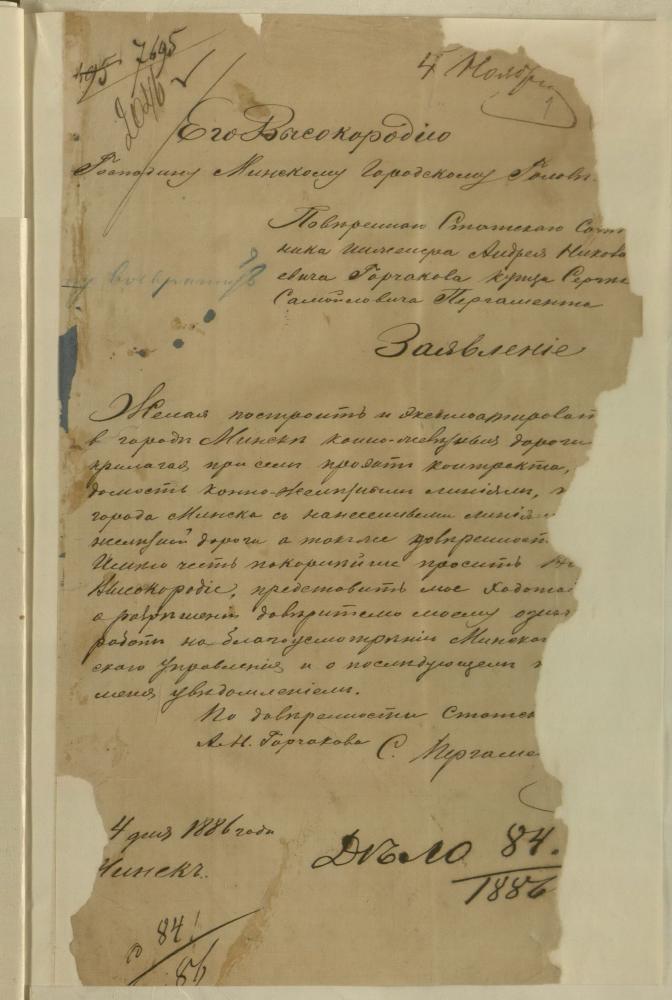 495 7695
2046
4 Ноября
Его Высокородію
Господину Минскому Городскому Головѣ.
Повѣреннаго Статскаго Совѣт
ника инженера Андрея Никола
евича Горчакова купца Сергѣя
Самойловича Пергамента
возвратить
Заявленіе
Желая построить и эксплоатировать
в городѣ Минскѣ конно-желѣзныя дороги
прилагая при семъ проэктъ контракта,
домость конно-желѣзнымъ линіямъ,
города Минска съ нанесенными линіями
желѣзной дороги а также довѣренность
Имѣю честь покорнѣйше просить
Высокородіе, представить мое ходатай
о разрѣшеніи довѣрителю моему
работы на благоусмотрѣніе Минскаго
скаго Управленія и о послѣдующемъ
меня увѣдомленіемъ.
По довѣренности Статск
А. Н. Горчакова С. Пергаме
4 дня 1886 года
Минскъ.
Дѣло 84.
1886
84
86